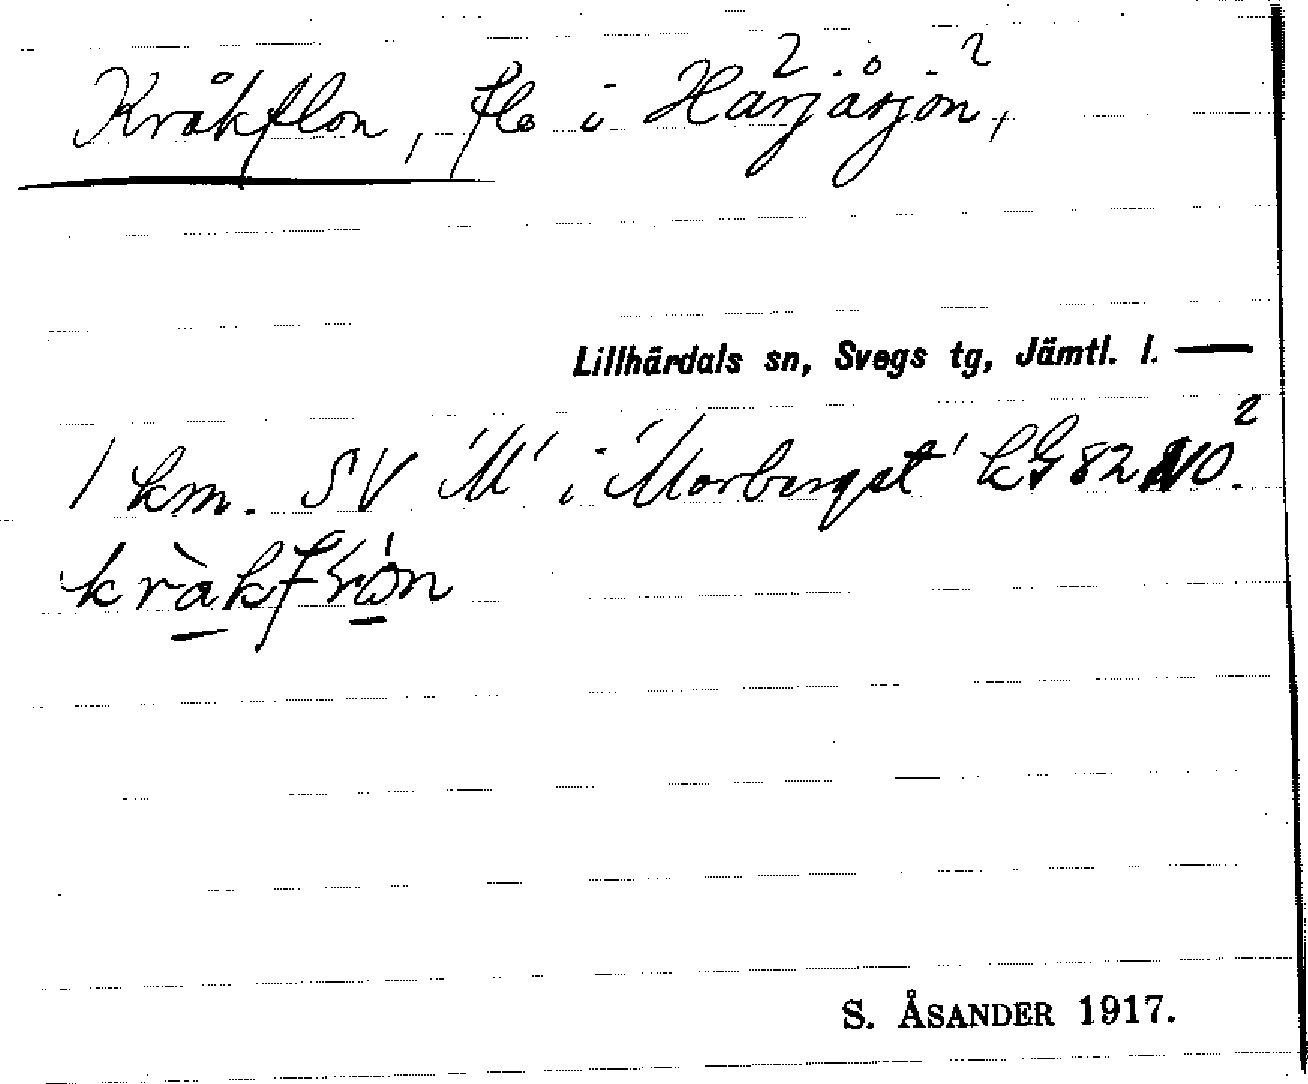 Kråkflon, flo i Härjåsjön,
Lillhärdals sn, Svegs tg, Jämtl. l. —
1 km. SV 'M' i 'Morbergst' kG 82 NO.²
S. ÅSANDER 1917.